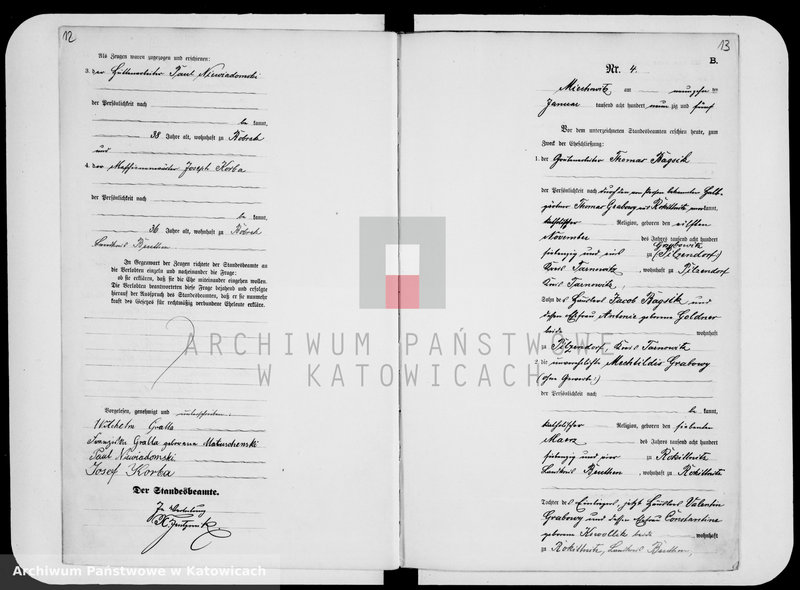 12
Als Zeugen waren zugezogen und erschienen:
3. der Hüttenarbeiter Paul Niewiadomski
der Persönlichkeit nach
be kannt,
38 Jahre alt, wohnhaft zu Bobrek
und
4. der Maschinenwärter Joseph Korba
der Persönlichkeit nach
be kannt,
36 Jahre alt, wohnhaft zu Bobrek
Landkreis Beuthen
In Gegenwart der Zeugen richtete der Standesbeamte an
die Verlobten einzeln und nacheinander die Frage:
ob sie erklären, daß sie die Ehe miteinander eingehen wollen.
Die Verlobten beantworteten diese Frage bejahend und erfolgte
hierauf der Ausspruch des Standesbeamten, daß er sie nunmehr
kraft des Gesetzes für rechtmäßig verbundene Eheleute erkläre.
Vorgelesen, genehmigt und unterschrieben:
Wilhelm Gralla
Franziska Gralla geborene Matuschenski
Paul Niewiadomski
Josef Korba
Der Standesbeamte.
In Vertretung
13
B.
Nr. 4.
Miechowitz am
Januar tausend acht hundert neun zig und fünf
Vor dem unterzeichneten Standesbeamten erschien heute, zum
Zweck der Eheschließung:
1. der Grubenarbeiter Thomas Bagsik
der Persönlichkeit nach durch den von Person bekannten Halb-
gärtner Thomas Grabowy aus Rokittnitz anerkannt,
katholischer Religion, geboren den elften
November des Jahres tausend acht hundert
siebenzig und eins zu (Ptzendorf)
Kreis Tarnowitz, wohnhaft zu Pilzendorf
Kreis Tarnowitz,
Sohn des Häuslers Jacob Bagsik und
dessen Ehefrau Antonie geborene Goldner
beide wohnhaft
zu Pilzendorf, Kreis Tarnowitz
2. die unverehelichte Mechtildis Grabowy
(ohne Gewerbe)
der Persönlichkeit nach
be kannt,
katholischer Religion, geboren den siebenten
Maerz des Jahres tausend acht hundert
siebenzig und vier zu Rokittnitz
Landkreis Beuthen, wohnhaft zu Rokittnitz
Tochter des Einliegers, jetzt Häuslers Valentin
Grabowy und dessen Ehefrau Constantine
geborene Kowollik beide wohnhaft
zu Rokittnitz, Landkreis Beuthen,
ARCHIWUM PAŃSTWOWE
W KATOWICACH
Archiwum Państwowe w Katowicach